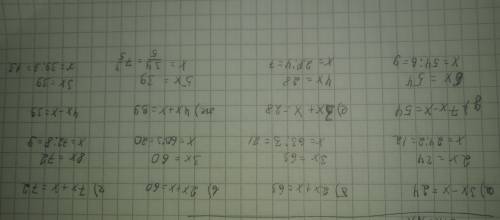 а) 3x - x = 24 б) 2x + x = 63 в) 2x + x = 60 г) 7x + x = 72
2x = 24 3x = 63 3x = 60 8x = 72
x = 24:2 = 12 x = 63:3 = 21 x = 60:3 = 20 x = 72:8 = 9
7x - x = 54 е) 3x + x = 28 ж) 4x + x = 39 4x - x = 39
6x = 54 4x = 28 5x = 39 3x = 39
x = 54:6 = 9 x = 28:4 = 7 x = 39/5 x = 39:3 = 13